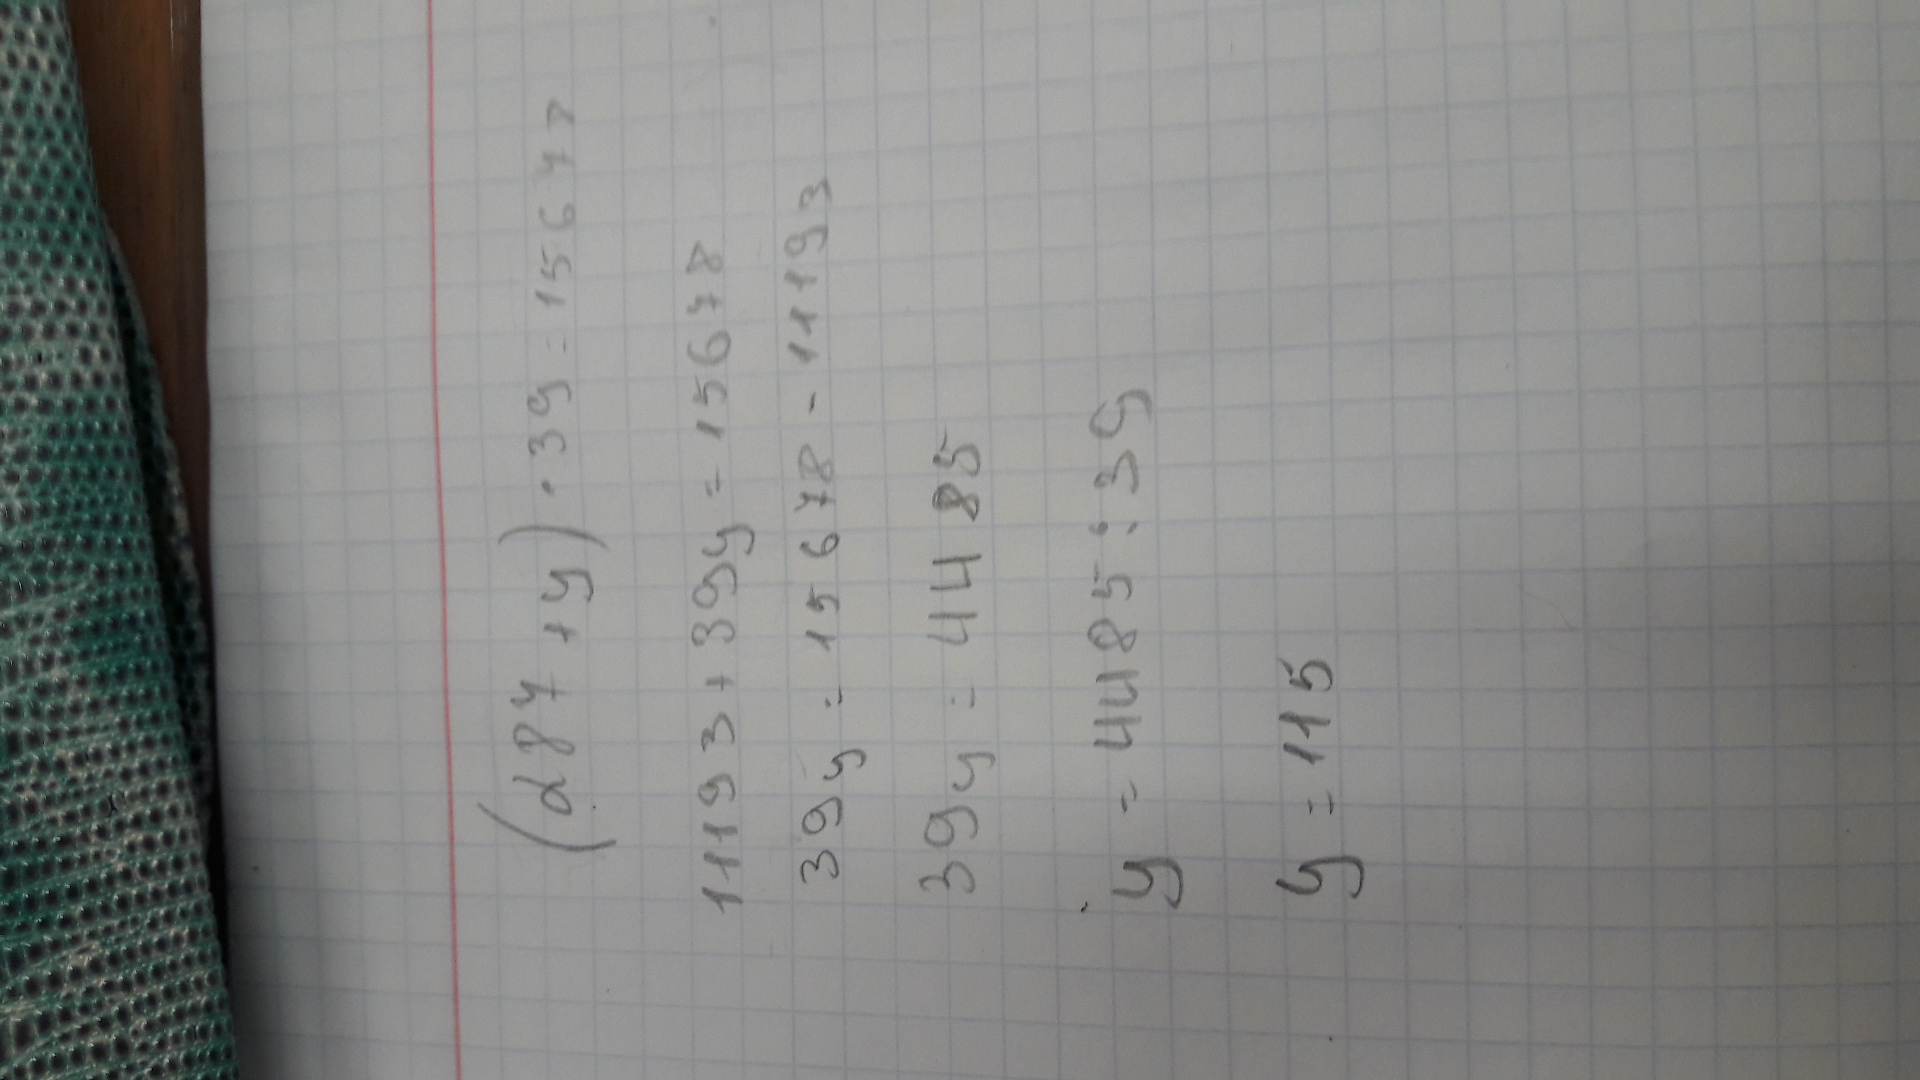 (287+y)·39=15678
11193+39y=15678
39y=15678-11193
39y=4485
y=4485:39
y=115